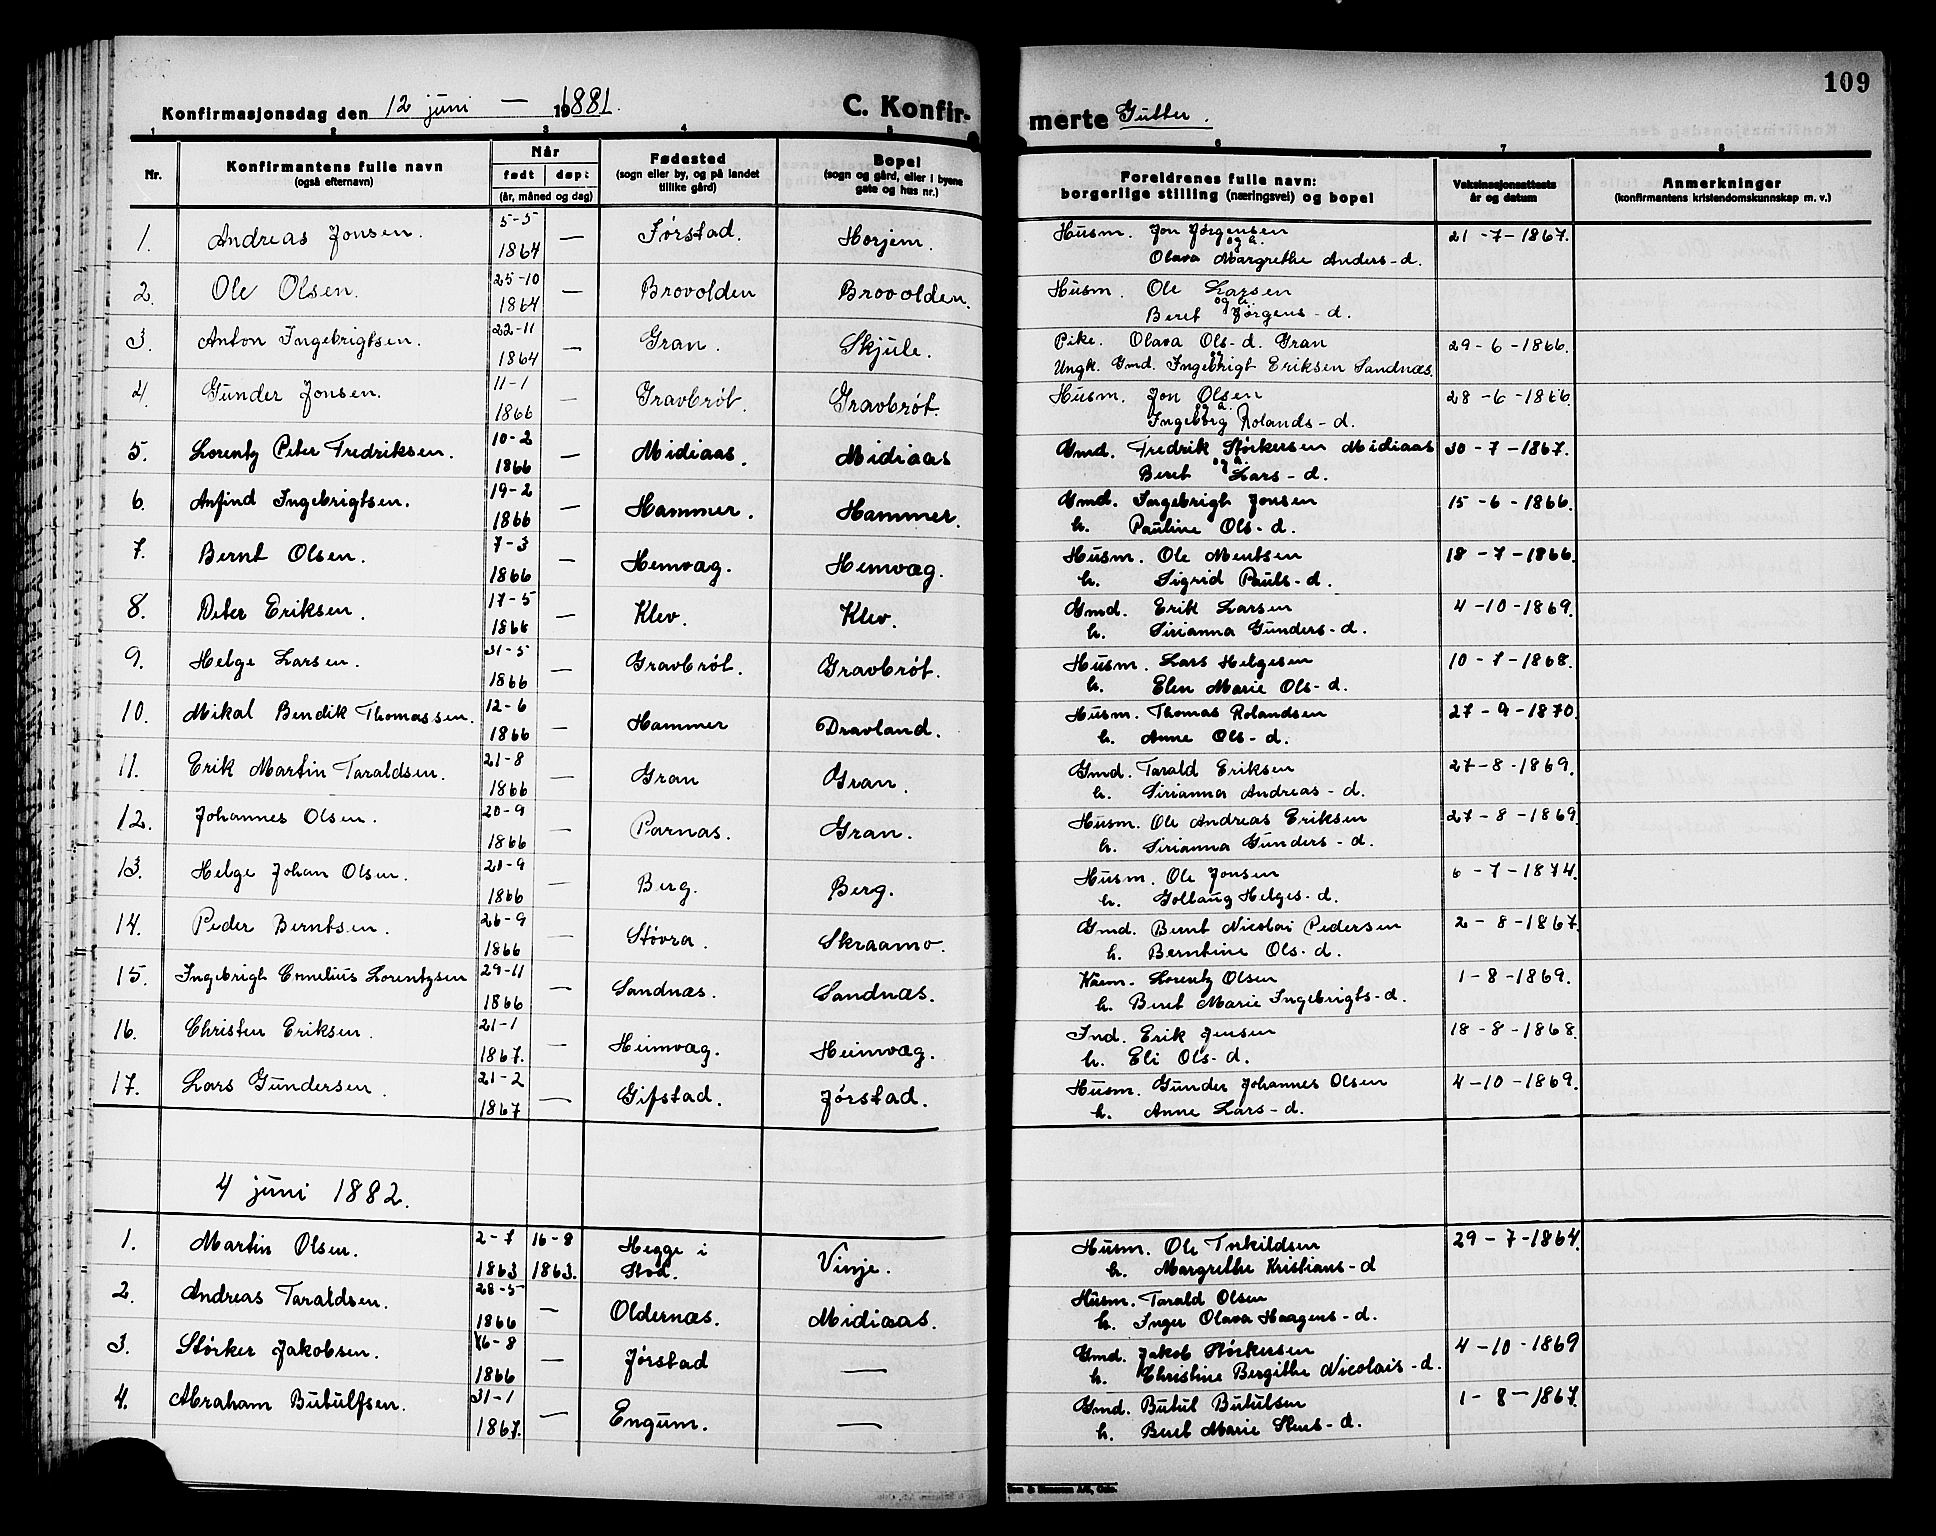 109
Konfirmasjonsdag den 12 juni — 19 1881.
C. Konfirmerte Gutter.
1 2 3 4 5 6 7 8
Nr.
Konfirmantens fulle navn
(også efternavn)
Når
født døpt
(år, måned og dag)
Fødested
(sogn eller by, og på landet
tillike gård)
Bopel
(sogn og gård, eller i byene
gate og hus nr.)
Foreldrenes fulle navn:
borgerlige stilling (næringsvei) og bopel
Vaksinasjonsattests
år og datum
Anmerkninger
(konfirmantens kristendomskunnskap m. v.)
1. Andreas Jonsen. 5-5 1864 — Jørstad. Horjem. Husm. Jon Jørgensen 21-7-1867.
og h.
Olava Margrethe Anders-d.
2. Ole Olsen. 25-10 1864 — Brovolden Brovolden. Husm. Ole Larsen
og h.
Beret Jørgens-d.
3. Anton Ingebrigtsen. 22-11 1864 — Gran. Skjule. Pike. Olava Ols-d. Gran 29-6-1866.
og
Ungk. Gmd. Ingebrigt Eriksen Sandnæs.
4. Gunder Jonsen. 11-1 1866 — Gravbrøt. Gravbrøt. Husm. Jon Olsen 28-6-1866.
og h.
Ingeborg Rolands-d.
5. Lorentz Peter Fredriksen. 10-2 1866 — Midiaas. Midiaas Gmd. Fredrik Størkersen Midiaas 30-7-1867.
og h.
Beret Lars-d.
6. Arfind Ingebrigtsen. 19-2 1866 — Hammer. Hammer. Gmd. Ingebrigt Jonsen 15-6-1866.
h. Pauline Ols-d.
7. Bernt Olsen. 7-3 1866 — Hemvæg. Hemvæg. Husm. Ole Mentsen 18-7-1866.
h. Sigrid Pauls-d.
8. Peter Eriksen. 17-5 1866 — Klev. Klev. Gmd. Erik Larsen 4-10-1869.
h. Sirianna Gunders-d.
9. Helge Larsen. 31-5 1866 — Gravbrøt. Gravbrøt. Husm. Lars Helgesen 10-7-1868.
h. Elen Marie Ols-d.
10. Mikal Bendik Thomassen. 12-6 1866 — Hammer Dravland. Husm. Thomas Rolandsen 27-9-1870.
h. Anne Ols-d.
11. Erik Martin Taraldsen. 21-8 1866 — Gran Gran. Gmd. Tarald Eriksen 27-8-1869.
h. Sirianna Andreas-d.
12. Johannes Olsen. 20-9 1866 — Parnas. Gran. Husm. Ole Andreas Eriksen 27-8-1869.
h. Sirianna Gunders-d.
13. Helge Johan Olsen. 21-9 1866 — Berg. Berg. Husm. Ole Jonsen 6-7-1874.
h. Gollaug Helges-d.
14. Peder Berntsen. 26-9 1866 — Støvra. Skraamo. Gmd. Bernt Nicolai Pedersen 2-8-1867.
h. Berntine Ols-d.
15. Ingebrigt Cornelius Lorentzsen 29-11 1866 — Sandnæs. Sandnæs. Lorentz Olsen 1-8-1869.
h. Beret Marie Ingebrigts-d.
16. Christen Eriksen. 21-1 1867. — Heimvæg. Heimvæg. Ind. Erik Jensen 18-8-1868.
h. Eli Ols-d.
17. Lars Gundersen. 21-2 1867 — Gifstad. Jørstad. Husm. Gunder Johannes Olsen 4-10-1869.
h. Anne Lars-d.
4 juni 1882.
1. Martin Olsen. 2-7 1863 16-8 1863. Hegge i Stod. Vinje. Husm. Ole Torkildsen 29-7-1864.
h. Margrethe Kristians-d
2. Andreas Taraldsen. 28-5 1866 — Oldernæs. Midiaas. Husm. Tarald Olsen
h. Inger Olava Haagens-d.
3. Størker Jakobsen. 16-8 1866 — Jørstad — Gmd. Jakob Størkersen 4-10-1869
h. Christine Bergithe Nicolais-d.
4. Abraham Bututlfsen. 31-1 1867. — Engum. — Gmd. Butul Butulsen 1-8-1867.
h. Beret Marie